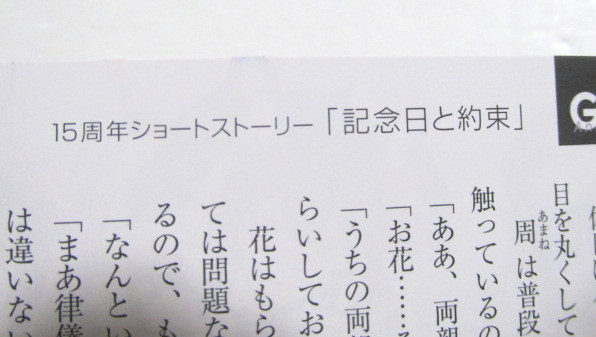 15周年ショートストーリー「記念日と約束」
G
目を丸くして
周は普段
あまね
触っているの
「ああ、両親
「お花……そ
「うちの両親
らいしてお
花はもら
ては問題な
るので、も
「なんとい
「まあ律儀
は違いない